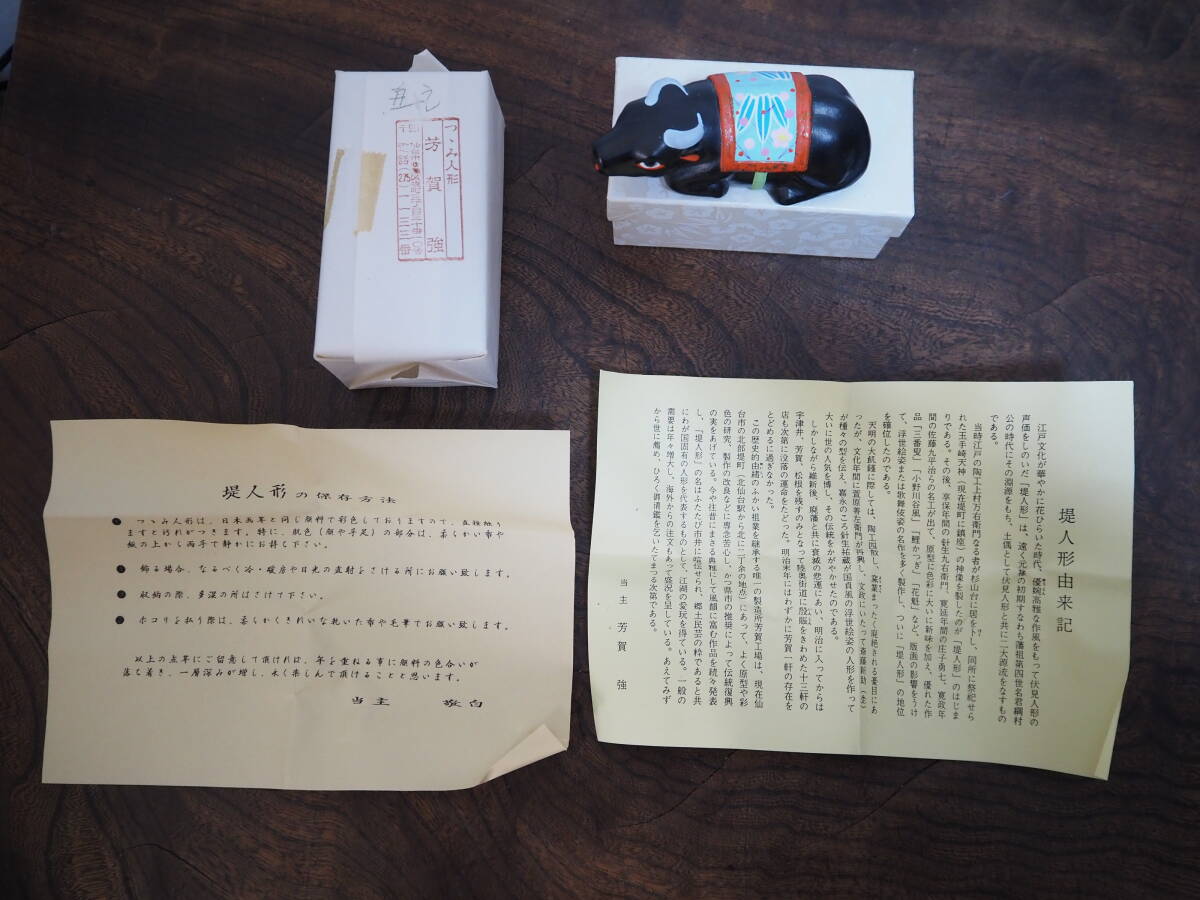 丑
つゝみ人形
芳賀強
堤人形の保存方法
● つゝみ人形は、日本画等と同じ顔料で彩色しておりますので、直接触り
ますと汚れがつきます。特に、肌色(顔や手足)の部分は、柔らかい布や
紙の上から両手で静かにお持ち下さい。
● 飾る場合、なるべく冷・暖房や日光の直射をさける所にお願い致します。
● 収納の際、多湿の所はさけて下さい。
● ホコリを払う際は、柔らかくきれいな乾いた布や毛筆でお願い致します。
以上の点等にご留意して頂ければ、年を重ねる事に顔料の色合いが
落ち着き、一層深みが増し、永く楽しんで頂けることと思います。
当主 敬白
堤人形由来記
江戸文化が華やかに花ひらいた時代、優婉高雅な作風をもって伏見人形の
声価をしのいだ「堤人形」は、遠く元禄の初期すなわち藩祖第四世名君綱村
公の時代にその淵源をもち、土偶として伏見人形と共に二大源流をなすもの
である。
当時江戸の陶工上村万右衛門なる者が杉山台に居を卜し、同所に祭祀せら
れた玉手崎天神(現在堤町に鎮座)の神像を製したのが「堤人形」のはじま
りである。その後、享保年間の針生九右衛門、寛延年間の庄子勇七、寛政年
間の佐藤九平治らの名工が出て、原型に色彩に大いに新味を加え、優れた作
品「三番叟」「小野川谷風」「鯉かつぎ」「花魁」など、版画の影響をうけ
て、浮世絵姿または歌舞伎姿の名作を多く製作し、ついに「堤人形」の地位
を確位したのである。
天明の大飢饉に際しては、陶工四散し、窯業まったく廃絶される憂目にあ
ったが、文化年間に萱原善左衛門が再興し、文政にいたって斎藤新助(圭)
が種々の型を伝え、嘉永のころ針生祐蔵が国貞風の浮世絵姿の人形を作って
大いに世の人気を博し、その伝統をかがやかせたのである。
しかしながら維新後、廃藩と共に衰滅の悲運にあい、明治に入ってからは
宇津井、芳賀、松根を残すのみとなって陸奥街道に殷賑をきわめた十三軒の
店も次第に没落の運命をたどった。明治末年にはわずかに芳賀一軒の存在を
とどめるに過ぎなかった。
この歴史的由緒のふかい祖業を継承する唯一の製造所芳賀工場は、現在仙
台市の北部堤町(北仙台駅から北に二丁余の地点)にあって、よく原型や彩
色の研究、製作の改良などに専念苦心し、かつ県市の推奨によって伝統復興
の実をあげている。今や往昔にまさる典雅にして風韻に富む作品を続々発表
し、「堤人形」の名はふたたび市井に喧伝せられ、郷土民芸の粋であると共
にわが国固有の人形を代表するものとして、江湖の愛玩を得ている。一般の
需要は年々増大し、海外からの注文もあって盛況を呈している。あえてみず
から世に薦め、ひろく御清鑑を乞いたてまつる次第である。
当主 芳賀 強